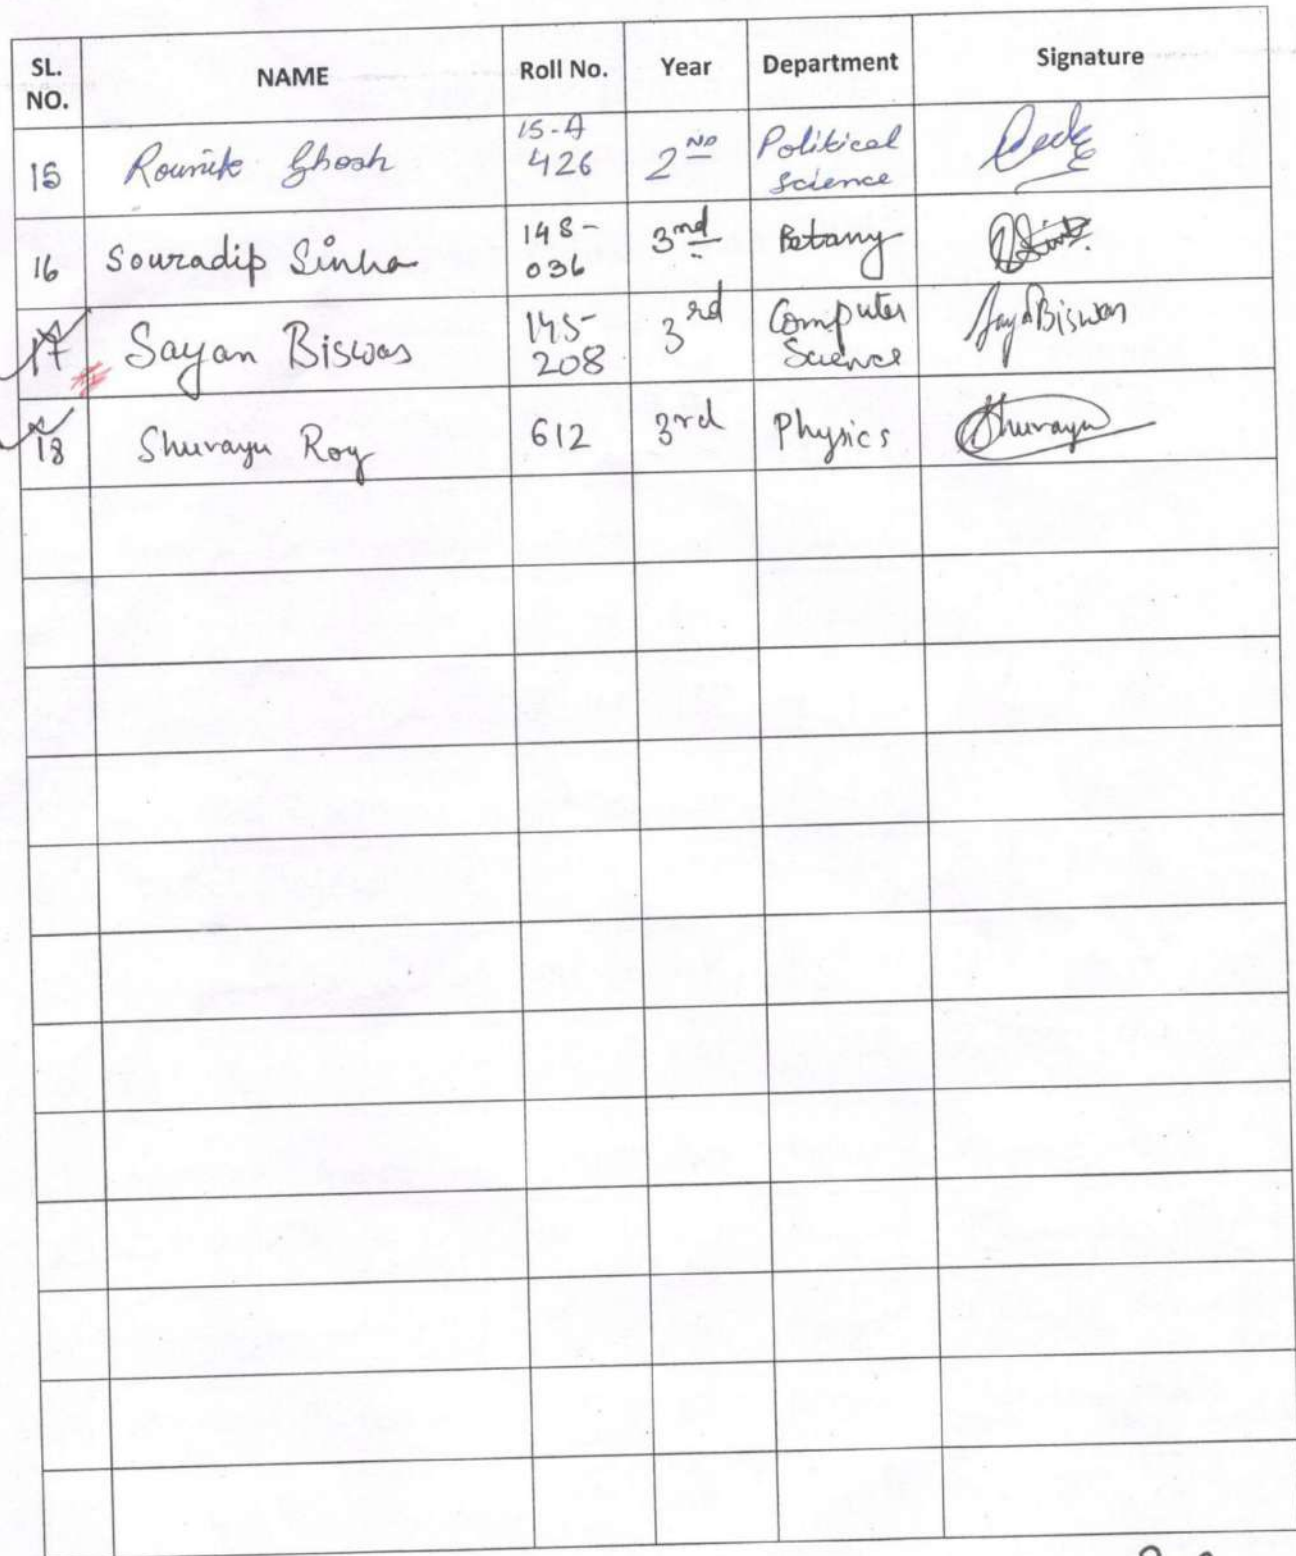 SL. NO. NAME Roll No. Year Department Signature
15 Rounik Ghosh 15-A 426 2ND Political Science
16 Souradip Sinha 148-036 3nd Botany
17 Sayan Biswas 145-208 3rd Computer Science Sayan Biswas
18 Shuvayu Roy 612 3rd Physics Shuvayu